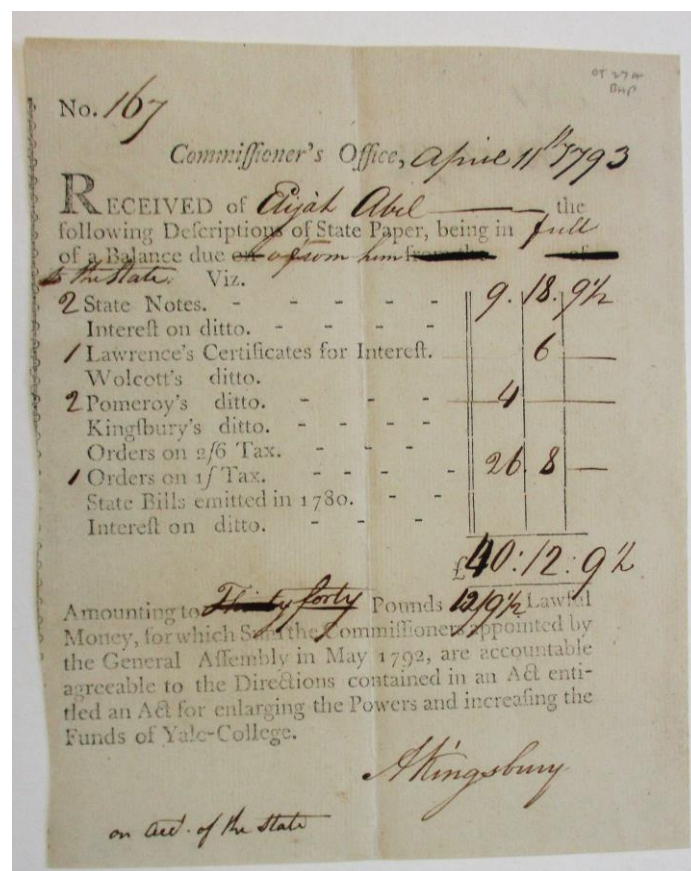 OT 27A
BHP
No. 167
Commiſſioner's Office, April 11th 1793
RECEIVED of Elijah Abel the
following Deſcriptions of State Paper, being in full
of a Balance due from him from the of
to the State. Viz.
2 State Notes. - - - - - 9. 18. 9½
Intereſt on ditto. - - - -
1 Lawrence's Certificates for Intereſt. 6 —
Wolcott's ditto.
2 Pomeroy's ditto. - - - 4 —
Kingſbury's ditto. - - -
Orders on 2/6 Tax. - - -
1 Orders on 1ſ Tax. - - - - - 26. 8 —
State Bills emitted in 1780. - -
Intereſt on ditto. - - -
£40:12:9½
Amounting to Thirty forty Pounds 12/9½ Lawful
Money, for which Sum the Commiſſioners appointed by
the General Aſſembly in May 1792, are accountable
agreeable to the Directions contained in an Act enti-
tled an Act for enlarging the Powers and increaſing the
Funds of Yale-College.
A Kingsbury
on acct. of the State